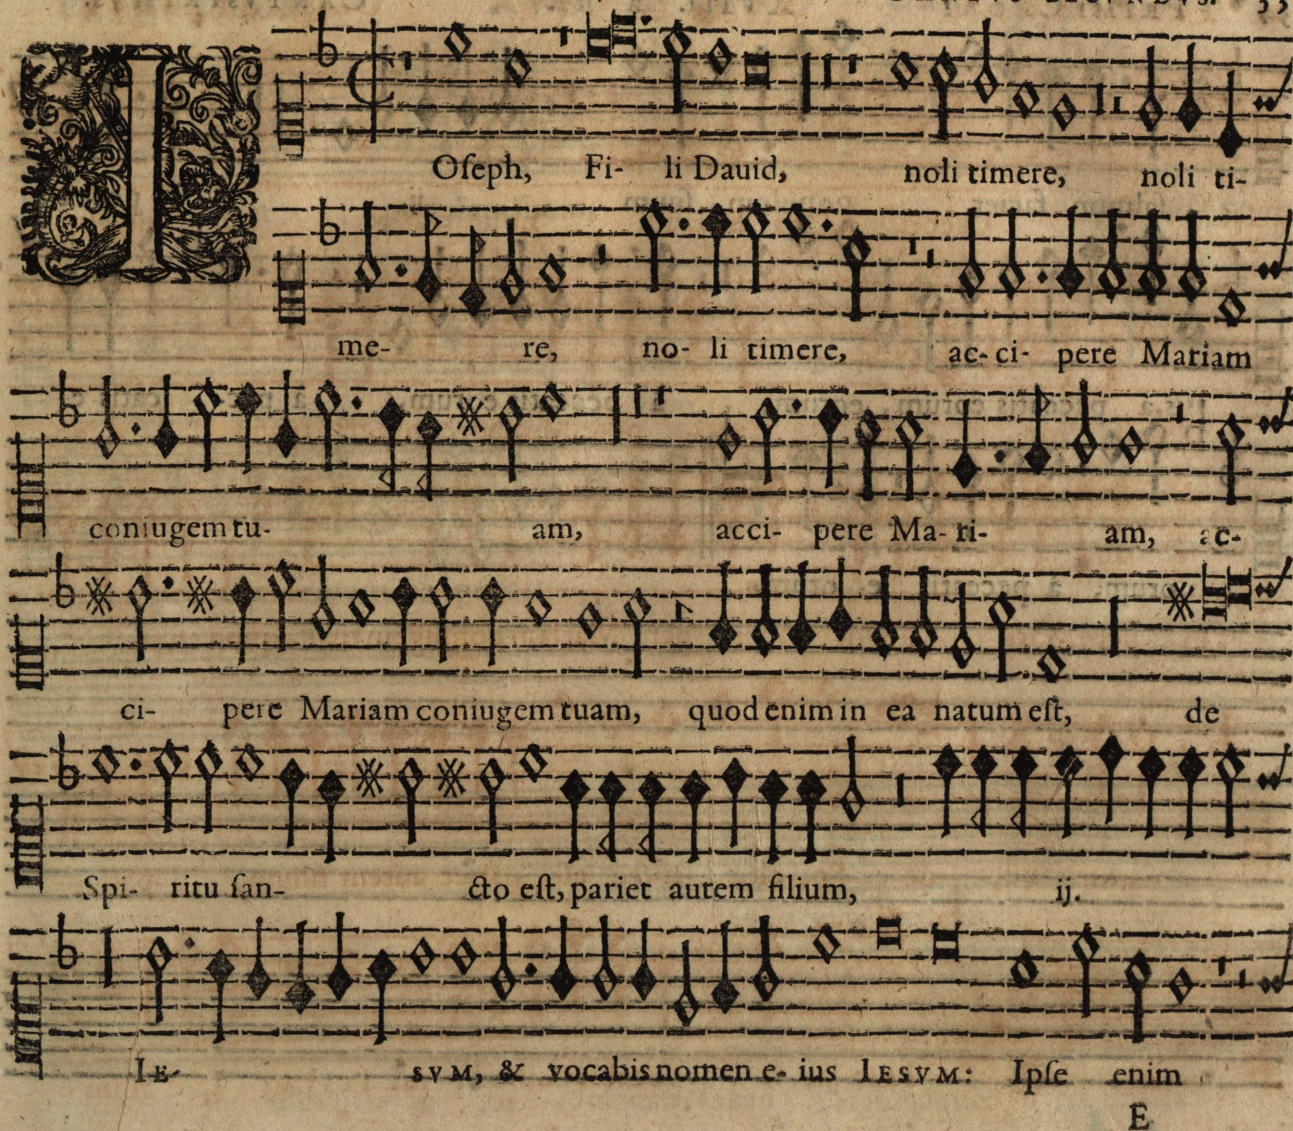 SECVNDVS. 33
IOſeph, Fi- li Dauid, noli timere, noli ti-
me- re, no- li timere, ac- ci- pere Mariam
coniugem tu- am, acci- pere Ma- ri- am, ac-
ci- pere Mariam coniugem tuam, quod enim in ea natum eſt, de
Spi- ritu ſan- cto eſt, pariet autem filium, ij.
IE- SVM, & vocabis nomen e- ius IESVM: Ipſe enim
E